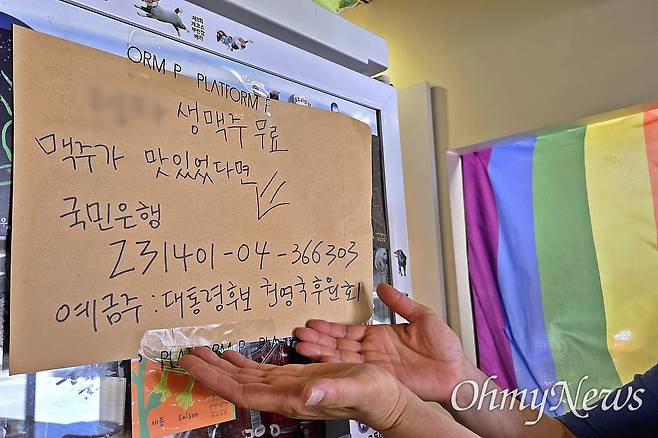 ORM P PLATFORM F
생맥주 무료
맥주가 맛있었다면
국민은행
231401-04-366303
예금주 : 대통령후보 권영국후원회
PLATFORM P
saison
ⓒOhmyNews